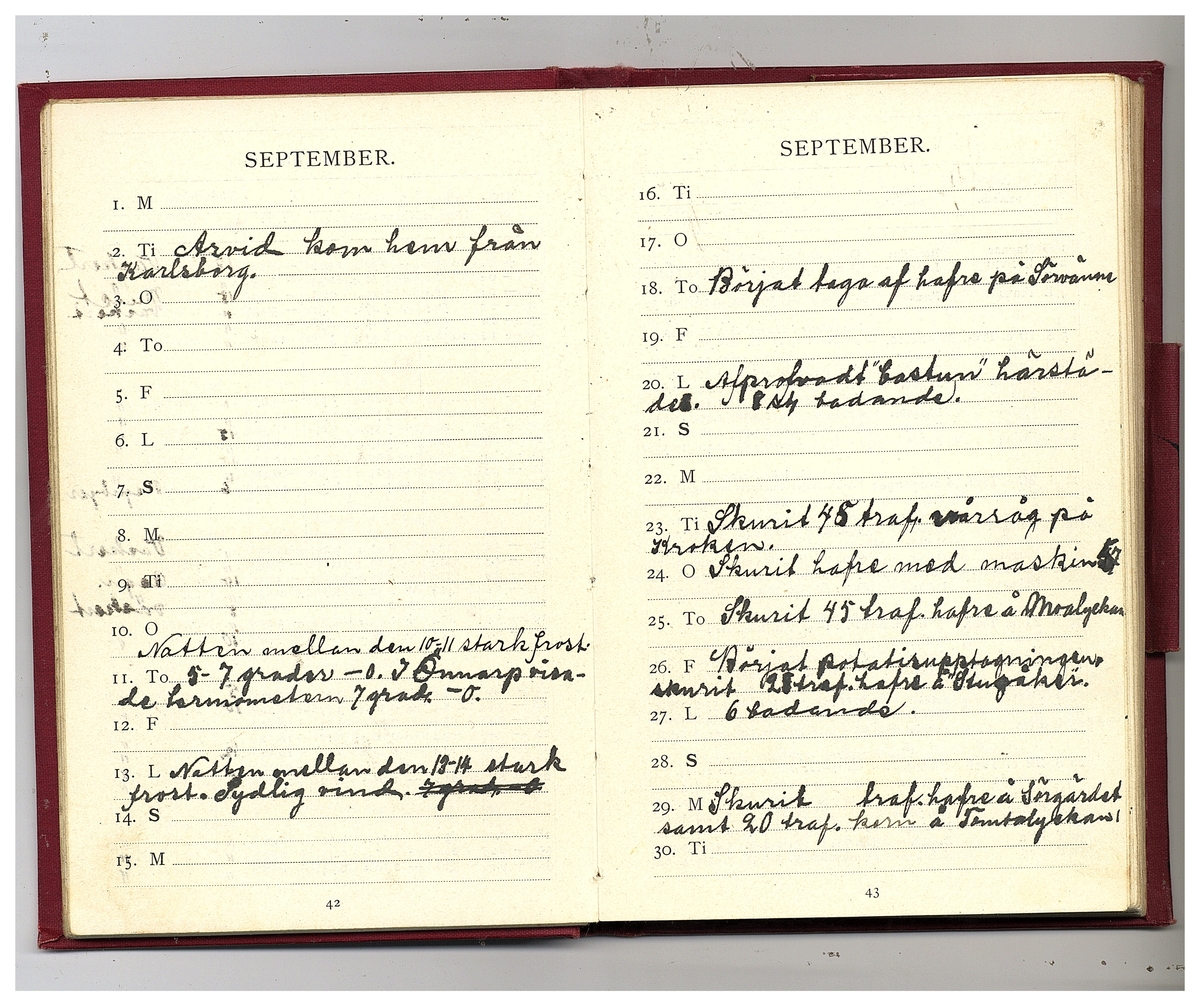 SEPTEMBER.
1. M
2. Ti Arvid kom hem från
Karlsborg.
3. O
4. To
5. F
6. L
7. S
8. M
9. Ti
10. O
Natten mellan den 10-11 stark frost.
11. To 5-7 grader -0. I Önnarp visa-
de termometern 7 grad. -0.
12. F
13. L Natten mellan den 13-14 stark
frost. Sydlig vind. 7 grad. -0
14. S
15. M
42
SEPTEMBER.
16. Ti
17. O
18. To Börjat taga af hafre på
19. F
20. L Afprofvadt "bastun" härstä-
des. 8 st badande.
21. S
22. M
23. Ti Skurit 45 traf. vårråg på
Kroken.
24. O Skurit hafre med maskin
25. To Skurit 45 traf. hafre å Moalyckan
26. F Börjat potatisupptagningen,
skurit 25 traf. hafre å "Stugåker.
27. L 6 badande.
28. S
29. M Skurit traf. hafre å Sörgärdet
samt 20 traf. korn å Tomtalyckan
30. Ti
43